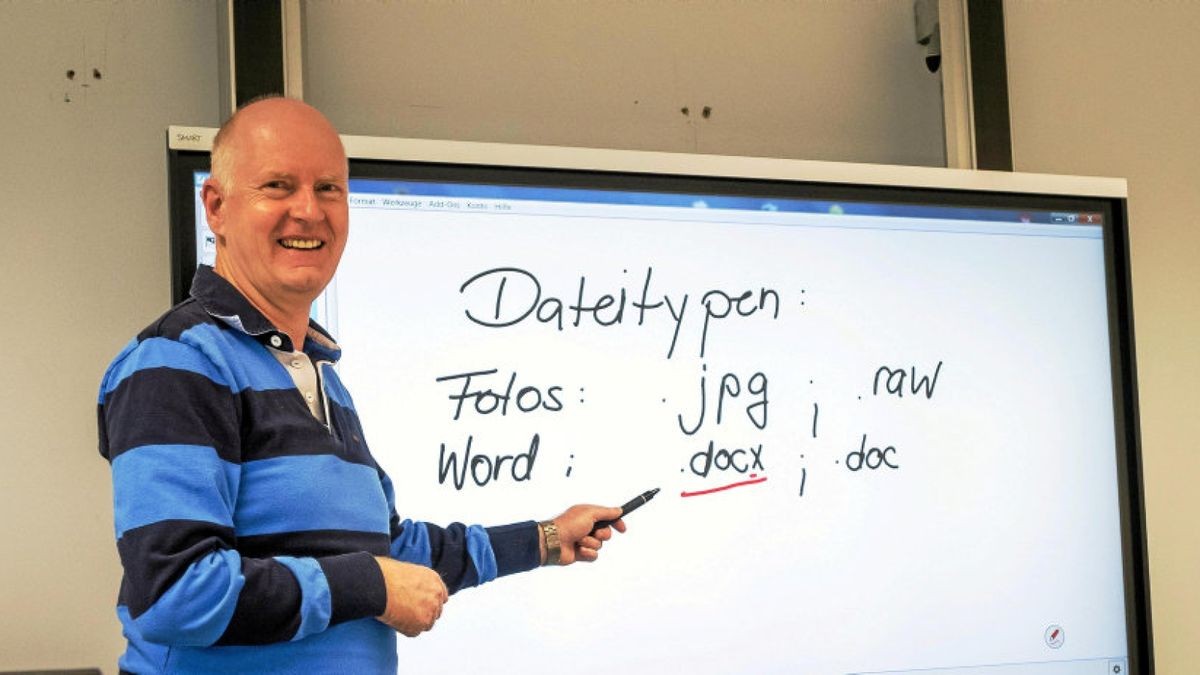 SMART
Format Werkzeuge Add-Ons Konto Hilfe
Dateitypen:
Fotos: .jpg ; .raw
Word : .docx ; .doc